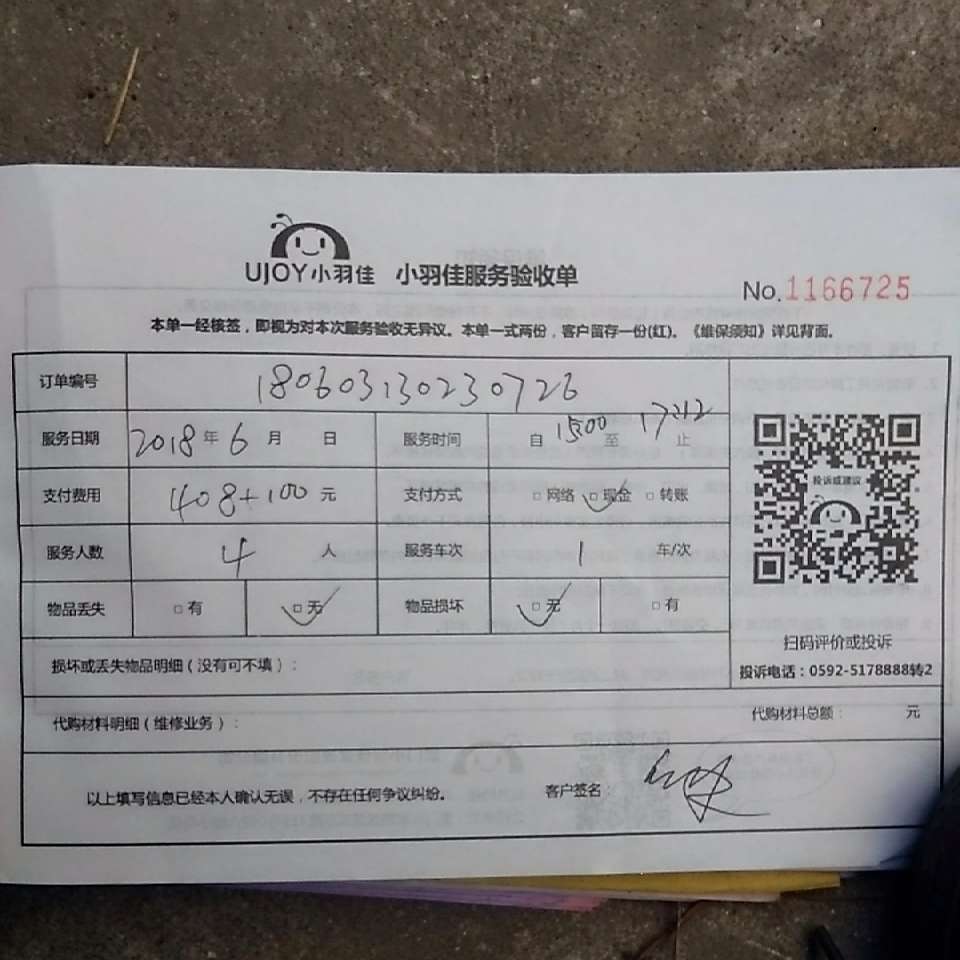 UJOY小羽佳 小羽佳服务验收单
No.1166725
本单一经核签，即视为对本次服务验收无异议。本单一式两份，客户留存一份(红)。《维保须知》详见背面。
订单编号 180603130230726
服务日期 2018年6月 日 服务时间 自15:00至17:12止
支付费用 408+100元 支付方式 □网络 □现金 □转账
服务人数 4人 服务车次 1车/次
物品丢失 □有 □无 物品损坏 □无 □有
投诉或建议
扫码评价或投诉
投诉电话：0592-5178888转2
损坏或丢失物品明细（没有可不填）：
代购材料明细（维修业务）： 代购材料总额： 元
以上填写信息已经本人确认无误，不存在任何争议纠纷。 客户签名：